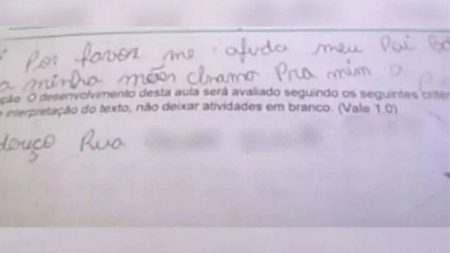 Por favor me ajuda meu Pai
a minha mães chamo Pra mim a
ção: O desenvolvimento desta aula será avaliado seguindo os seguintes criter
e interpretação do texto, não deixar atividades em branco. (Vale 1.0)
douço Rua